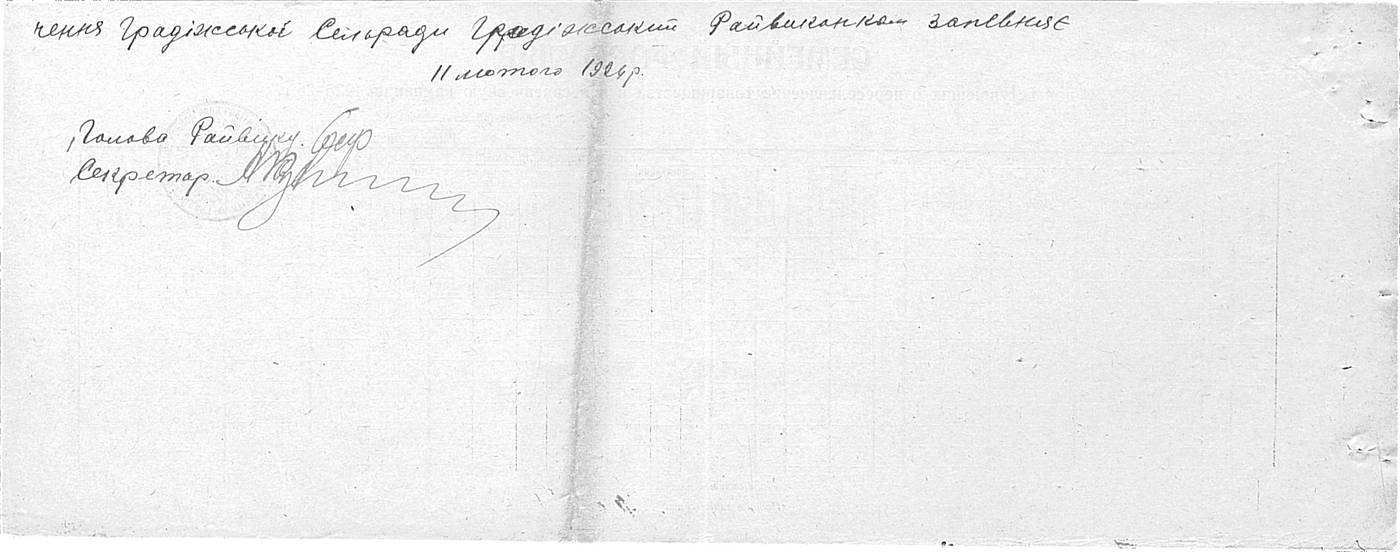 чення Градіжської Сельради Градіжський Райвиконком запевняє
11 лютого 1926р.
Голова Райвику.
Секретар